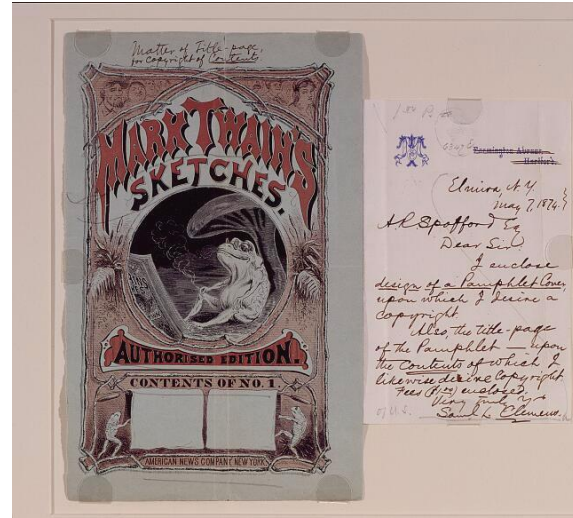 Matter of Title-page,
for copyright of Contents
MARK TWAIN'S
SKETCHES.
AUTHORISED EDITION.
CONTENTS OF NO. 1.
AMERICAN NEWS COMPANY NEW YORK
Farmington Avenue,
Hartford.
Elmira, N.Y.
May 7, 1874.
A R Spofford Esq
Dear Sir
I enclose
design of a Pamphlet Cover,
upon which I desire a
copyright.
Also, the title-page
of the Pamphlet — upon
the contents of which I
likewise desire copyright.
Fees enclosed
Very Truly Yrs
Saml. L. Clemens.